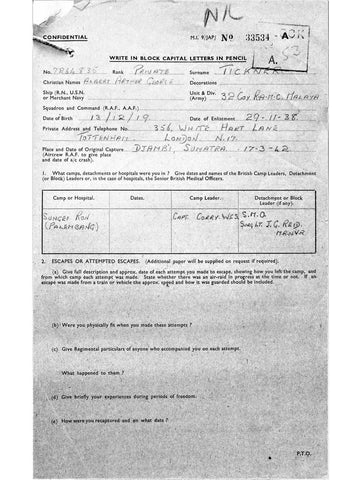 NIL
CONFIDENTIAL M.I. 9/JAP/ No 33534
A.
53
WRITE IN BLOCK CAPITAL LETTERS IN PENCIL
No. Rank PRIVATE Surname TICKNER
Christian Names ALBERT ARTHUR GEORGE Decorations
Ship (R.N., U.S.N. or Merchant Navy Unit & Div. (Army) 32 COY R.A.M.C. MALAYA
Squadron and Command (R.A.F., A.A.F.)
Date of Birth 13/12/19 Date of Enlistment 29-11-38
Private Address and Telephone No. 356, WHITE HART LANE
TOTTENHAM LONDON N.17
Place and Date of Original Capture DJAMBI, SUMATRA 17-3-42
(Aircrew R.A.F. to give place and date of a/c crash).
1. What camps, detachments or hospitals were you in ? Give dates and names of the British Camp Leaders, Detachment
(or Block) Leaders or, in case of hospitals, the Senior British Medical Officers.
Camp or Hospital. Dates. Camp Leader. Detachment or Block Leader (if any).
SUNGEI RON CAPT. CORRY. W.F.S S.M.O
(PALEMBANG) SURG LT. J.G. REID.
2. ESCAPES OR ATTEMPTED ESCAPES. (Additional paper will be supplied on request if required).
(a) Give full description and approx. date of each attempt you made to escape, showing how you left the camp, and
from which camp each attempt was made. State whether there was an air-raid in progress at the time or not. If an
escape was made from a train or vehicle the approx. speed and how it was guarded should be included.
(b) Were you physically fit when you made these attempts ?
(c) Give Regimental particulars of anyone who accompanied you on each attempt.
What happened to them ?
(d) Give briefly your experiences during periods of freedom.
(e) How were you recaptured and on what date ?
P.T.O.